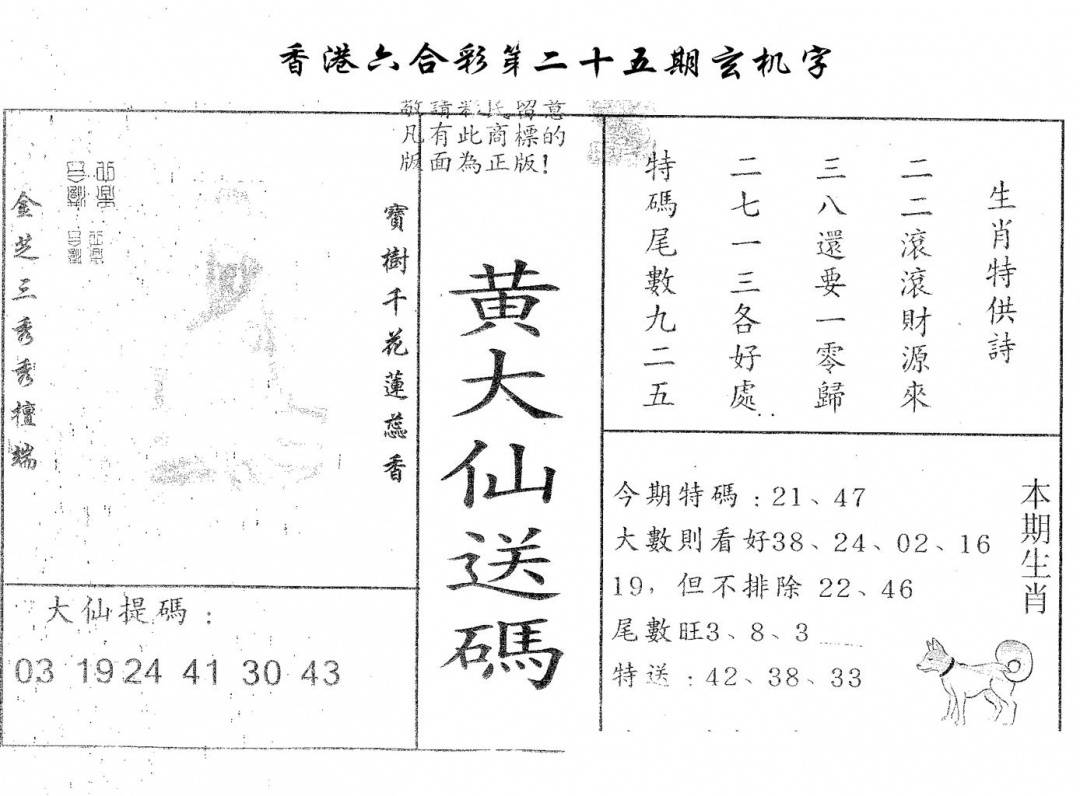 香港六合彩第二十五期玄机字
敬請彩民留意
凡有此商標的
版面為正版!
金芝三秀秀檀端
寶樹千花蓮蕊香
黄大仙送碼
大仙提碼:
03 19 24 41 30 43
生肖特供詩
二二滾滾財源來
三八還要一零歸
二七一三各好處
特碼尾數九二五
本期生肖
今期特碼:21、47
大數則看好38、24、02、16
19,但不排除 22、46
尾數旺3、8、3
特送:42、38、33